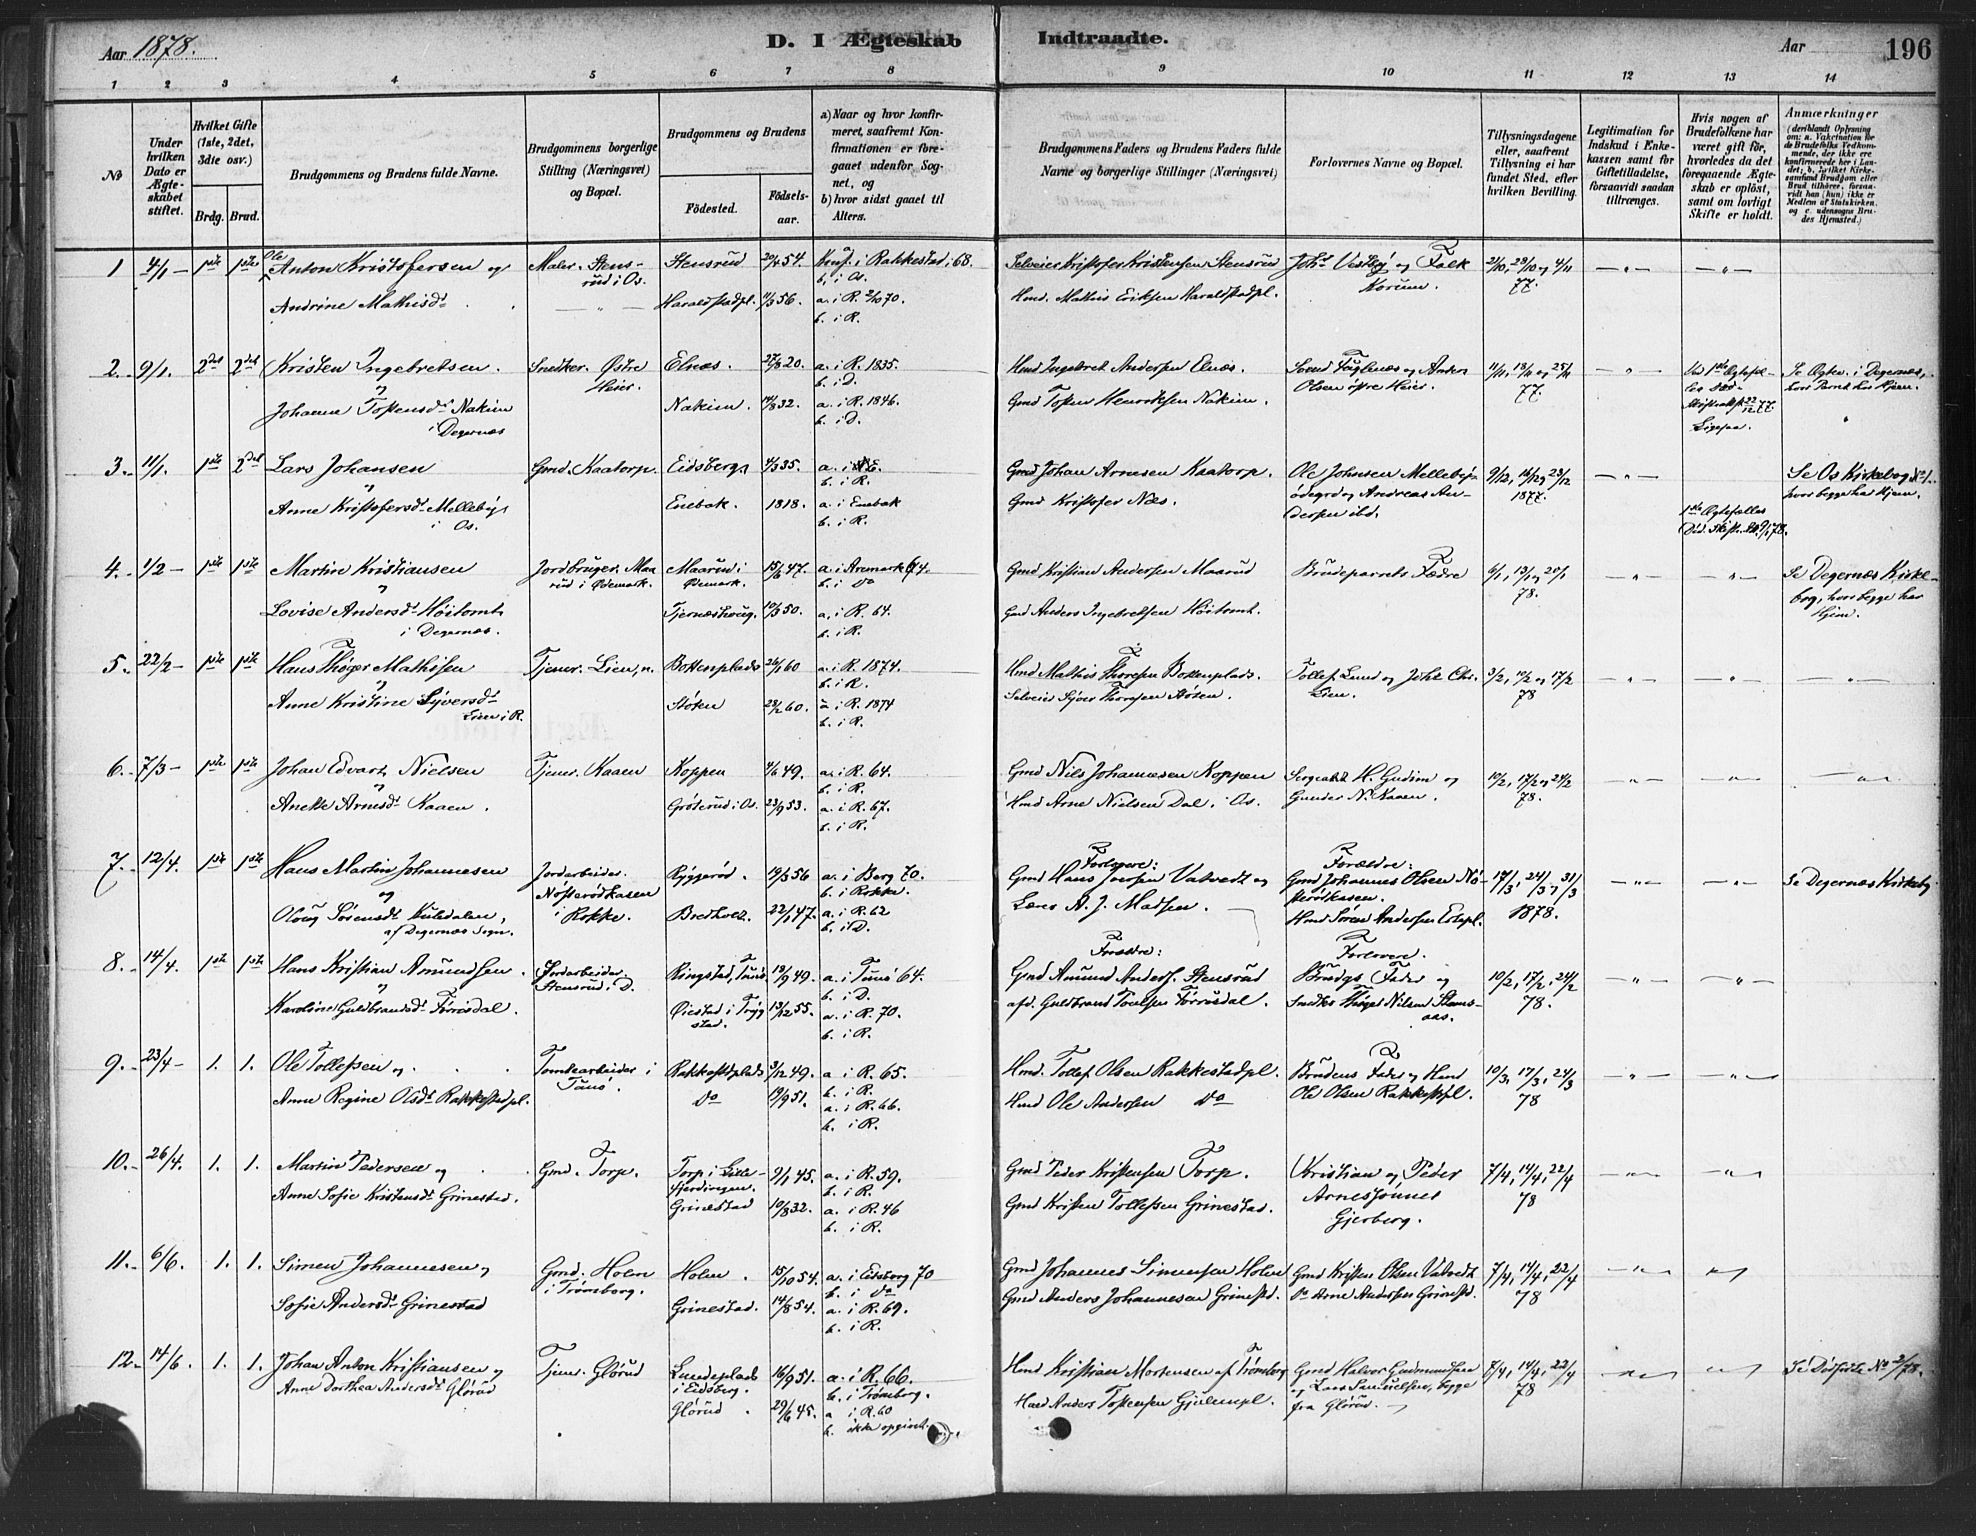 Aar 1878.
D. I Ægteskab
Indtraadte.
Aar
196
1 2 3 4 5 6 7 8 9 10 11 12 13 14
No
Under hvilken Dato er Ægteskabet stiftet.
Hvilket Gifte (1ste, 2det, 3die osv.)
Brdg. Brud.
Brudgommens og Brudens fulde Navne.
Brudgommens borgerlige Stilling (Næringsvei) og Bopæl.
Brudgommens og Brudens
Fødested.
Fødsels-aar.
a) Naar og hvor konfirmeret, saafremt Konfirmationen er foregaaet udenfor Sognet, og
b) hvor sidst gaaet til Alters.
Brudgommens Faders og Brudens Faders fulde Navne og borgerlige Stillinger (Næringsvei)
Forlovernes Navne og Bopæl.
Tillysningsdagene eller, saafremt Tillysning ei har fundet Sted, efter hvilken Bevilling.
Legitimation for Indskud i Enkekassen samt for Giftetilladelse, forsaavidt saadan tiltrænges.
Hvis nogen af Brudefolkene har været gift før, hvorledes da det foregaaende Ægteskab er opløst, samt om lovligt Skifte er holdt.
Anmærkninger
(deriblandt Oplysning om: a. Vakcination for de Brudefolks Vedkommende, der ikke ere konfirmerede her i Landet; b. hvilket Kirkesamfund Brudgom eller Brud tilhører, forsaavidt han (hun) ikke er Medlem af Statskirken, og c. udensogns Brudes Hjemsted.)
1 4/1 – 1ste 1ste Ole Anton Kristofersen og Maler. Stens- Stensrud 20/4 54. Konf. i Rakkestad i 68. Selveier Kristofer Kristensen Stensrud Johs Vestby og Falk 2/10, 28/10 og 4/11 — " — — " —
rud i Os. b. i Os. Korum. 77.
Andrine Mathisdt — " — Haraldstadpl. 11/3 56. a. i R. 2/10 70. Hmd. Mathis Eriksen Haraldstadpl.
b. i R.
2. 9/1. 2det 2det Kristen Ingebretsen. Snedker. Østre Elnæs. 27/8 20. a. i R. 1835. Hmd Ingebret Andersen Elnæs. Svend Fuglenæs og Anders 11/11, 18/11 og 25/11 — " — Ved 1ste Ægtefæl- Se Ægtev. i Degernæs,
og Heier. b. i D. Olsen østre Heier. 77. les Død hvor Parret har Hjem.
Johanne Tostensdt Nakim Nakim. 14/8 32. a. i R. 1846. Gmd Tosten Henriksen Nakim. Skifteatt. 22/12 77.
i Degernæs b. i D. Ligesaa.
3. 11/1. 1ste 2det Lars Johansen Gmd. Kaatorp. Eidsberg. 4/3 35. a. i E. Gmd Johan Arnesen Kaatorp. Ole Johnsen Melleby- 9/12, 16/12 og 23/12 — " — Se Os Kirkebog No 1.
og b. i R. ødegrd og Andreas An- 1877. hvor begge har Hjem.
Anne Kristofersdt Melleby Enebak. 1818. a. i Enebak Gmd Kristofer Næs. dersen ibd. 1ste Ægtefælles
i Os. b. i R. Død. Skift. 9/1 78.
4. 1/2 – 1ste 1ste Martin Kristiansen Jordbruger. Maa- Maarud i 15/6 47. a. i Aremark 64. Gmd Kristian Andersen Maarud Brudeparrets Fædre 6/1, 13/1 og 20/1 — " — — " — Se Degernæs Kirke-
og rud i Ødemark. Ødemark. b. i do 78. bog, hvor begge har
Lovise Andersdt Høitomt Tjernæshoug. 10/3 50. a. i R. 64. Gmd Anders Ingebretsen Høitomt. Hjem.
i Degernæs. b. i R.
5. 22/2 – 1ste 1ste Hans Thøger Mathisen Tjener. Lien, n. Bottenplads 26/1 60 a. i R. 1874. Hmd Mathis Thoresen Bottenplads. Tollef Lund og Johs Chr. 3/2, 10/2 og 17/2 — " — — " — — " —
og b. i R. Lien. 78
Anne Kristine Syversdt Støken 28/2 60. a. i R. 1874 Selveier Syver Thoresen Støken.
Lien i R. b. i R.
6. 7/3 – 1ste 1ste Johan Edvart Nielsen Tjener. Kaaen Koppen 4/6 49. a. i R. 64. Gmd Nils Johannesen Koppen Sergeant H. Gudim og 10/2, 17/2 og 24/2 — " — — " — — " —
og b. i R. Gunder N. Kaaen. 78.
Anette Arnesdt Kaaen. Grøterud i Os. 23/9 53. a. i R. 67. Hmd Arne Nielsen Dal. i Os.
b. i R.
7. 12/4. 1ste 1ste Hans Martin Johannesen Jordarbeider. Ryggerød. 19/3 56 a. i Berg 70. Forlovere: Forældre: 17/3, 24/3, 31/3 — " — — " — Se Degernæs Kirkebg
og Nøsterødkasen b. i Rokke. Gmd Hans Iversen Vatvedt og Gmd Johannes Olsen Nø- 1878.
Oloug Sørensdt Kuldalen, i Rokke. Bredholt. 22/1 47. a. i R. 62 Læres A. J. Madsen. sterødkasen.
af Degernæs Sogn. b. i D. Hmd Søren Andersen Estepl.
8. 14/4. 1ste 1ste Hans Kristian Amundsen. Jordarbeider Ringstad, Tune. 18/9 49. a. i Tune 64. Forældre: Forlovere. 10/2, 17/2, 24/2 — " — — " —
og Stensrud i D. b. i D. Gmd Amund Anders. Stensrud Brudgs Fader og 78.
Karoline Guldbrandsdt Tørrisdal. Øiestad i Tryg- 13/12 55. a. i R. 70. afd. Guldbrand Toresen Tørrisdal. Snedker Thøger Nilsen Stams-
stad. b. i R. aas.
9. 23/4 – 1. 1. Ole Tollefsen og Tomtearbeider i Rakkestadplads 3/12 49. a. i R. 65. Hmd. Tollef Olsen Rakkestadpl. Brudens Fader og Hmd 10/3, 17/3, 24/3 — " — — " —
Tune. b. i R. Ole Olsen Rakkestpl. 78
Anne Regine Olsdt Rakkestadpl. do 19/9 51. a. i R. 66. Hmd Ole Andersen do
b. i R.
10. 26/4. 1. 1. Martin Pedersen og Gmd. Torp. Torp i Lille- 9/1 45. a. i R. 59. Gmd Peder Kristensen Torp. Kristian og Peder 7/4, 14/4, 22/4 — " — — " —
fjerdingen. b. i R. Arnessønner 78
Anne Sofie Kristensdt Grinestad. Grinestad 10/8 32. a. i R. 46 Gmd Kristen Tollefsen Grinestad. Gjerberg.
b. i R.
11. 6/6. 1. 1. Simen Johannesen og Gmd. Holm Holm. 15/10 54. a. i Eidsberg 70 Gmd Johannes Simensen Holm Gmd Kristen Olsen Vatvedt 7/4, 14/4, 22/4 — " — — " —
i Trømborg. b. i do 78
Sofie Andersdt Grinestad Grinestad. 14/8 54. a. i R. 69. Gmd Anders Johannesen Grinestd. do Arne Andersen Grinestd.
b. i R.
12. 14/6. 1. 1. Johan Anton Kristiansen og Tjener. Glørud Lundeplads 16/9 51. a. i R. 66. Hmd Kristian Mortensen af Trømborg Gmd Halvor Gudmundsen 7/4, 14/4, 22/4 — " — — " — Se Dødsliste No 2/78.
Anne Dorthea Andersdt Glørud i Eidsberg. b. i Trømborg. og Lars Samuelsen, begge 78
Glørud. 29/6 45. a. i R. 60 Hmd Anders Tostensen Gjulempl. fra Glørud.
b. ikke opgivet.